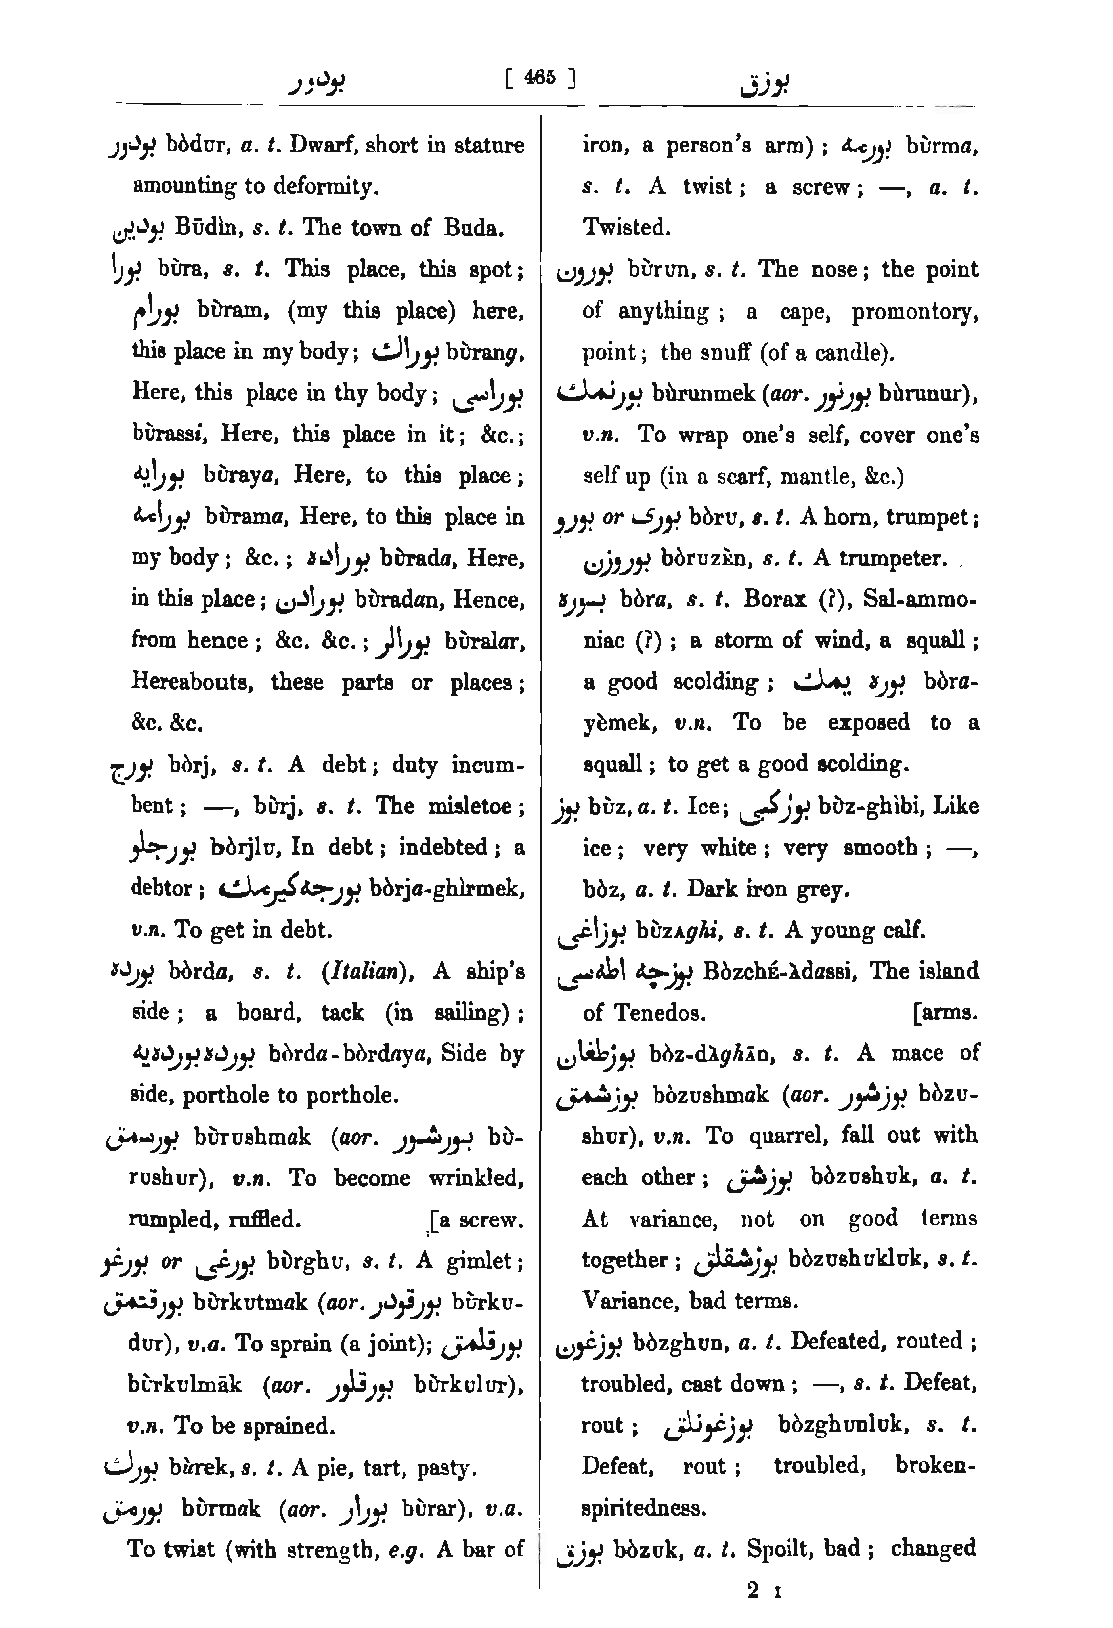 بودور [ 465 ] بوزق
بودور bòdur, a. t. Dwarf, short in stature
amounting to deformity.
بودین Būdìn, s. t. The town of Buda.
بورا bùra, s. t. This place, this spot;
بورام bùram, (my this place) here,
this place in my body; بوراك bùrang,
Here, this place in thy body; بوراسی
bùrassi, Here, this place in it; &c.;
بورایه bùraya, Here, to this place;
بورامه bùrama, Here, to this place in
my body; &c.; بوراده bùrada, Here,
in this place; بورادن bùradan, Hence,
from hence; &c. &c.; بورالر bùralar,
Hereabouts, these parts or places;
&c. &c.
بورج bòrj, s. t. A debt; duty incum-
bent; —, bùrj, s. t. The misletoe;
بورجلو bòrjlu, In debt; indebted; a
debtor; بورجه كیرمك bòrja-ghìrmek,
v.n. To get in debt.
بورده bòrda, s. t. (Italian), A ship's
side; a board, tack (in sailing);
بورده بوردهیه bòrda-bòrdaya, Side by
side, porthole to porthole.
بورشمق bùrushmak (aor. بورشور bù-
rushur), v.n. To become wrinkled,
rumpled, ruffled. [a screw.
بورغو or بورغی bùrghu, s. t. A gimlet;
بورقتمق bùrkutmak (aor. بورقودر bùrku-
dur), v.a. To sprain (a joint); بورقلمق
bùrkulmāk (aor. بورقلور bùrkulur),
v.n. To be sprained.
بورك bùrek, s. t. A pie, tart, pasty.
بورمق bùrmak (aor. بورار bùrar), v.a.
To twist (with strength, e.g. A bar of
iron, a person's arm); بورمه bùrma,
s. t. A twist; a screw; —, a. t.
Twisted.
بورون bùrun, s. t. The nose; the point
of anything; a cape, promontory,
point; the snuff (of a candle).
بورنمك bùrunmek (aor. بورنور bùrunur),
v.n. To wrap one's self, cover one's
self up (in a scarf, mantle, &c.)
بورو or بوری bòru, s. t. A horn, trumpet;
بوروزن bòruzèn, s. t. A trumpeter.
بوره bòra, s. t. Borax (?), Sal-ammo-
niac (?); a storm of wind, a squall;
a good scolding; بوره یمك bòra-
yèmek, v.n. To be exposed to a
squall; to get a good scolding.
بوز bùz, a. t. Ice; بوزكبی bùz-ghìbi, Like
ice; very white; very smooth; —,
bòz, a. t. Dark iron grey.
بوزاغی bùzᴀghi, s. t. A young calf.
بوزجه اطهسی Bòzché-àdassi, The island
of Tenedos. [arms.
بوزطغان bòz-dàghān, s. t. A mace of
بوزشمق bòzushmak (aor. بوزشور bòzu-
shur), v.n. To quarrel, fall out with
each other; بوزشق bòzushuk, a. t.
At variance, not on good terms
together; بوزشقلق bòzushukluk, s. t.
Variance, bad terms.
بوزغون bòzghun, a. t. Defeated, routed;
troubled, cast down; —, s. t. Defeat,
rout; بوزغونلق bòzghunluk, s. t.
Defeat, rout; troubled, broken-
spiritedness.
بوزق bòzuk, a. t. Spoilt, bad; changed
2 I